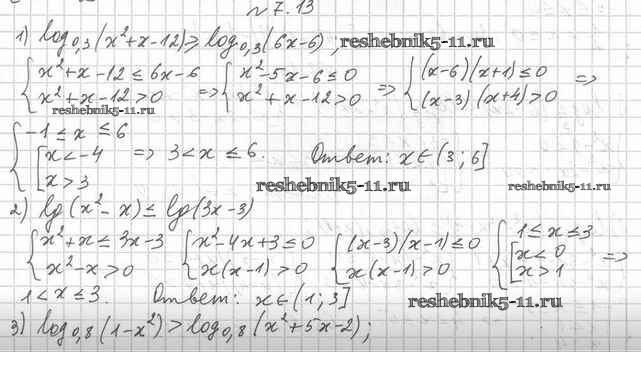 №7.13
1) log₀,₃(x²+x-12) ≥ log₀,₃(6x-6); reshebnik5-11.ru
{ x²+x-12 ≤ 6x-6 => { x²-5x-6 ≤ 0 => { (x-6)(x+1) ≤ 0 =>
x²+x-12 > 0 x²+x-12 > 0 (x-3)(x+4) > 0
reshebnik5-11.ru
{ -1 ≤ x ≤ 6
[ x < -4 => 3 < x ≤ 6. Ответ: x ∈ (3; 6]
x > 3
reshebnik5-11.ru reshebnik5-11.ru
2) lg(x²-x) ≤ lg(3x-3)
{ x²+x ≤ 3x-3 { x²-4x+3 ≤ 0 { (x-3)(x-1) ≤ 0 { 1 ≤ x ≤ 3
x²-x > 0 x(x-1) > 0 x(x-1) > 0 [ x < 0 =>
x > 1
1 < x ≤ 3. Ответ: x ∈ (1; 3] reshebnik5-11.ru
3) log₀,₈(1-x²) > log₀,₈(x²+5x-2);